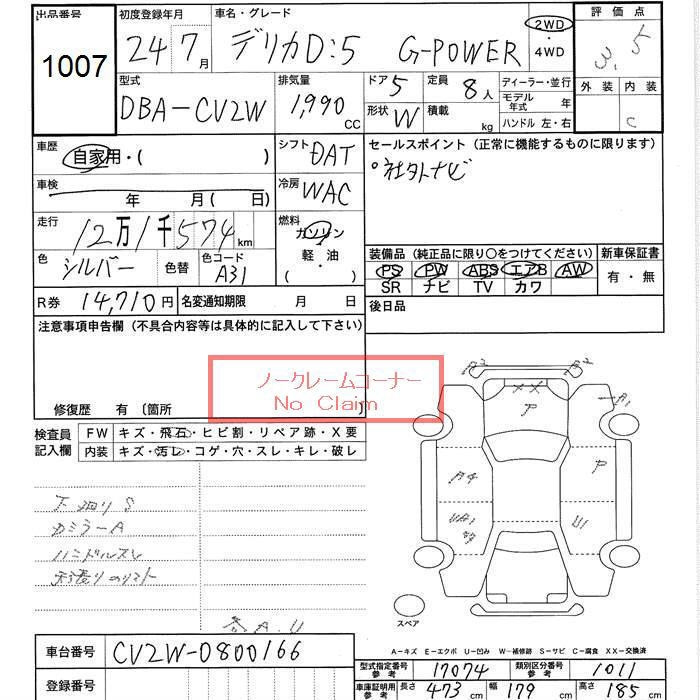 出品番号 初度登録年月 車名・グレード 評価点
1007 24 7月 デリカD:5 G-POWER 2WD・4WD 3.5
型式 排気量 ドア 5 定員 8人 ディーラー・並行 外装 内装
DBA-CV2W 1,990 CC 形状 W 積載 kg モデル年式 年 C
ハンドル 左・右
車歴 シフト DAT セールスポイント (正常に機能するものに限ります)
自家用・( ) °社外ナビ
車検 冷房 WAC
年 月 ( 日)
走行 燃料
12万1千574km ガソリン
色 シルバー 色替 色コード A31 軽・油 ( )
装備品 (純正品に限り〇をつけてください) 新車保証書
PS PW ABS エアB AW 有・無
SR ナビ TV カワ
R券 14,710円 名変通知期限 月 日 後日品
注意事項申告欄 (不具合内容等は具体的に記入して下さい)
ノークレームコーナー
No Claim
修復歴 有 〔箇所 〕
検査員記入欄 FW キズ・飛石・ヒビ割・リペア跡・X要
内装 キズ・汚レ・コゲ・穴・スレ・キレ・破レ
A2 A2
XX
P A1
A4 P
UA1 U1
下廻りS
カミラーA
ハンドルスレ
A.U
スペア
A-キズ E-エクボ U-凹み W-補修跡 S-サビ C-腐食 XX-交換済
車台番号 CV2W-0800166
型式指定番号 参考 17074 類別区分番号 参考 1011
登録番号 車庫証明用 参考 長さ 473 cm 幅 179 cm 高さ 185 cm